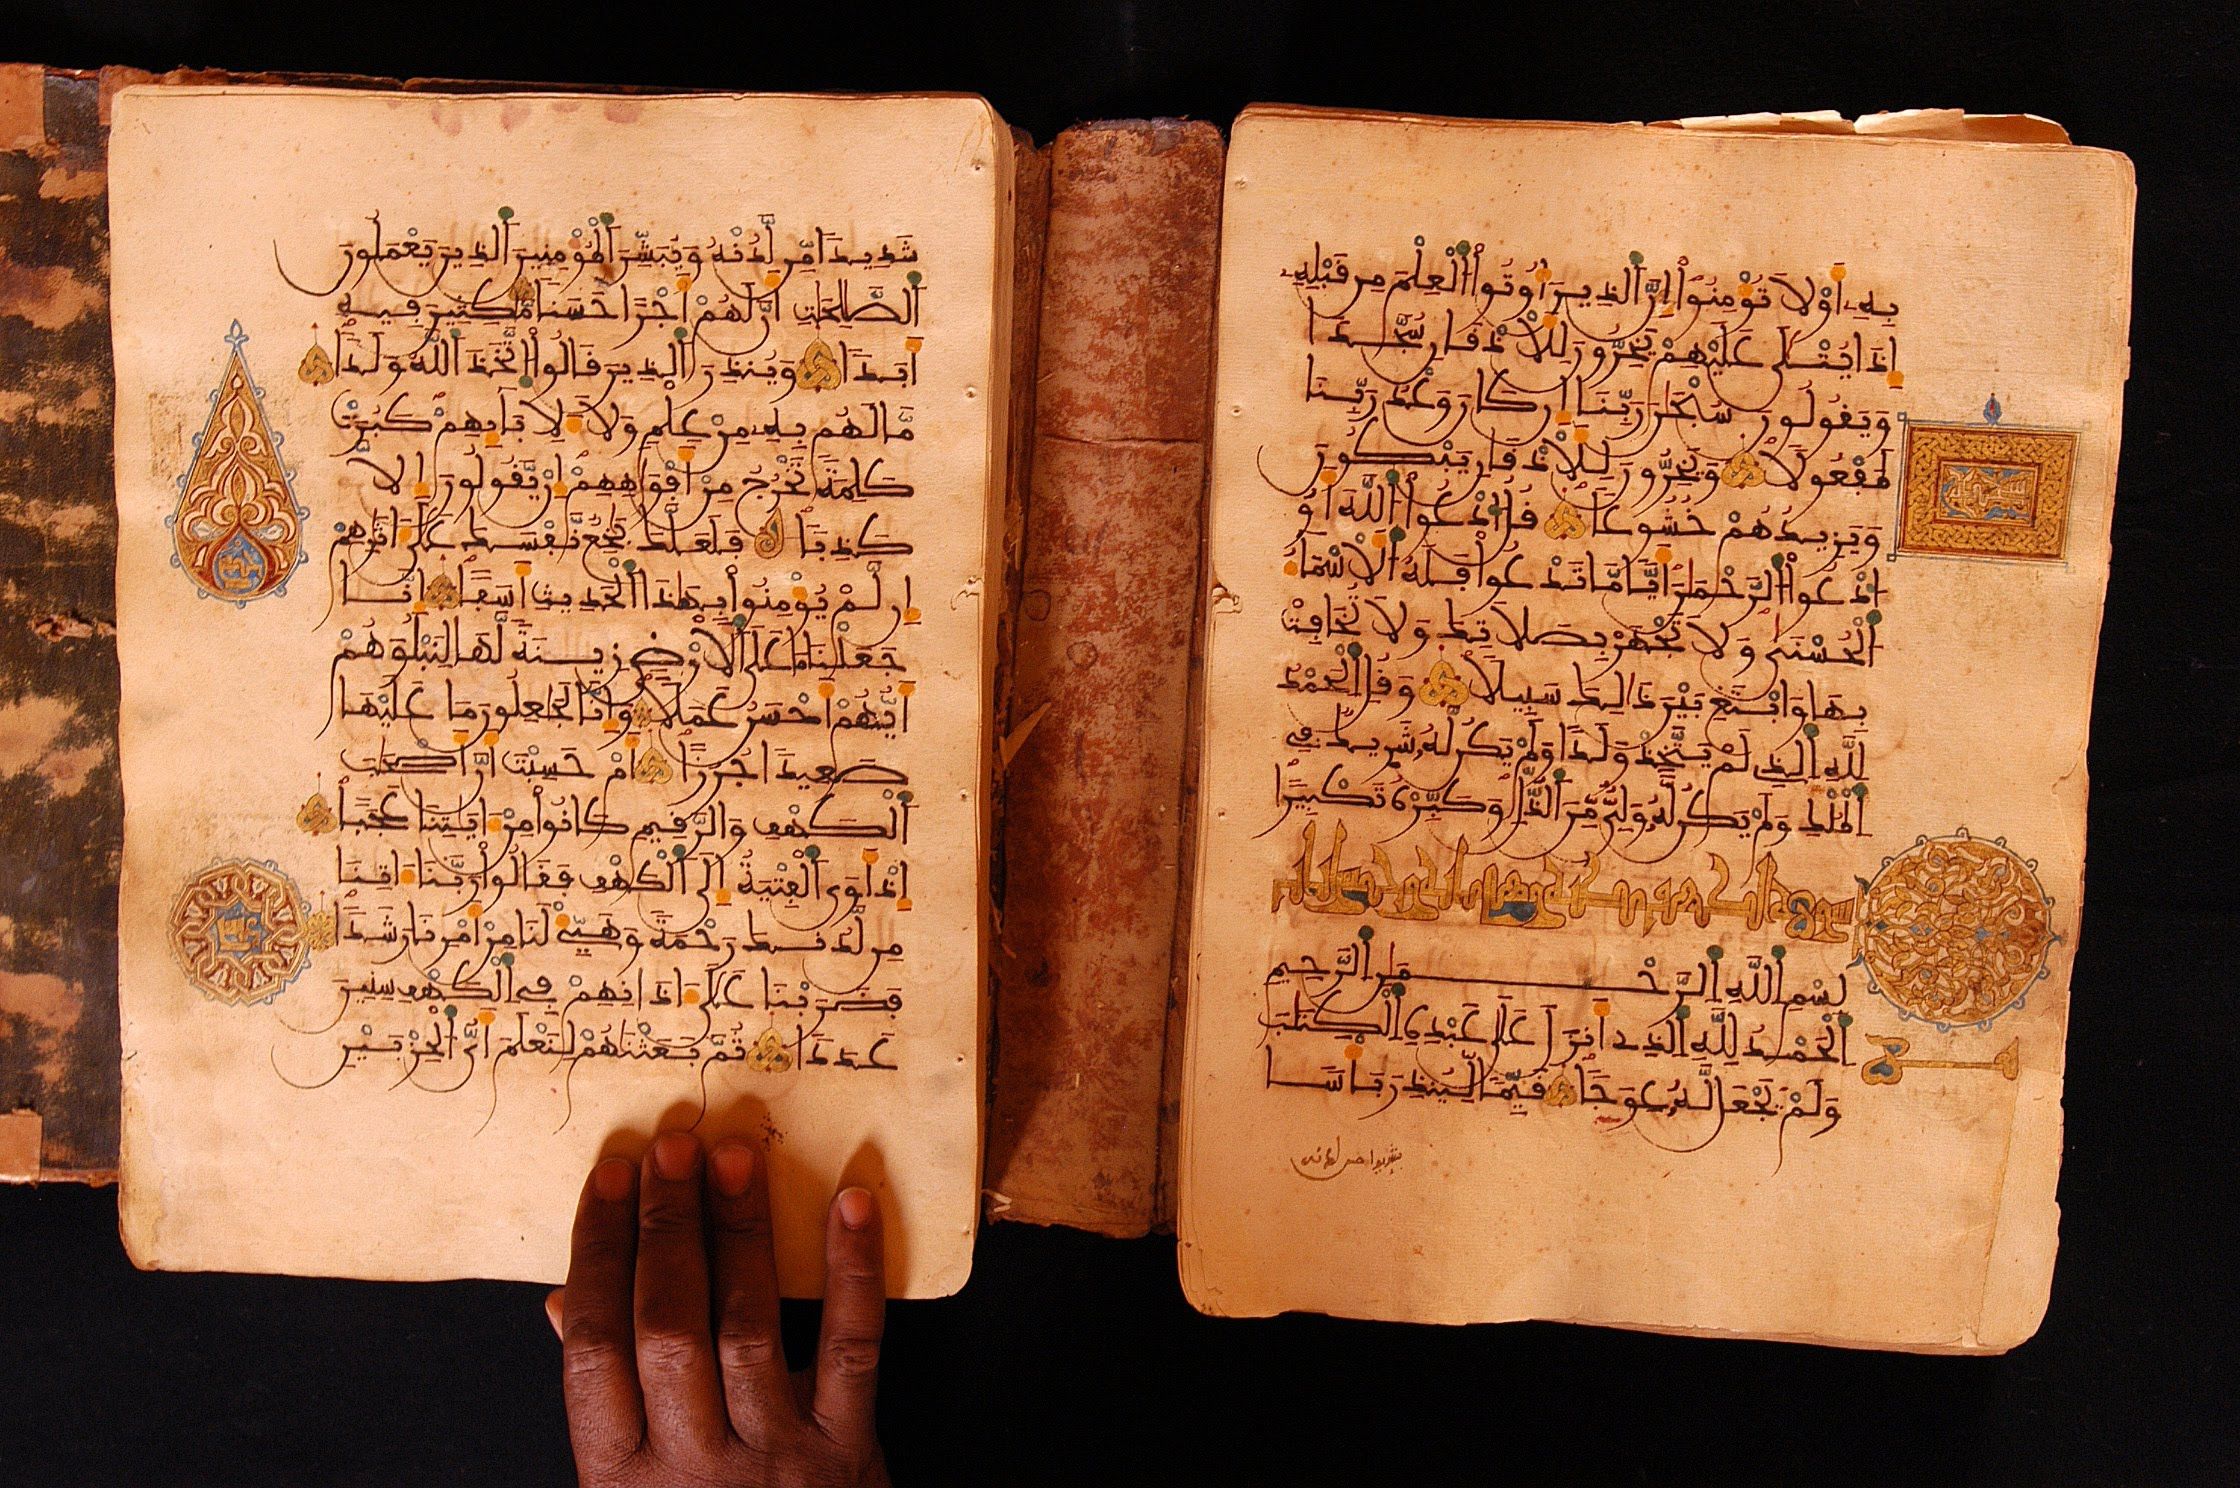 بِهِ أَوْ لَا تُؤْمِنُوا إِنَّ الَّذِينَ أُوتُوا الْعِلْمَ مِن قَبْلِهِ
إِذَا يُتْلَىٰ عَلَيْهِمْ يَخِرُّونَ لِلْأَذْقَانِ سُجَّدًا
وَيَقُولُونَ سُبْحَٰنَ رَبِّنَا إِن كَانَ وَعْدُ رَبِّنَا
لَمَفْعُولًا وَيَخِرُّونَ لِلْأَذْقَانِ يَبْكُونَ
وَيَزِيدُهُمْ خُشُوعًا قُلُ ادْعُوا اللَّهَ أَوُ
ادْعُوا الرَّحْمَٰنَ أَيًّا مَّا تَدْعُوا فَلَهُ الْأَسْمَاءُ
الْحُسْنَىٰ وَلَا تَجْهَرْ بِصَلَاتِكَ وَلَا تُخَافِتْ
بِهَا وَابْتَغِ بَيْنَ ذَٰلِكَ سَبِيلًا وَقُلِ الْحَمْدُ
لِلَّهِ الَّذِي لَمْ يَتَّخِذْ وَلَدًا وَلَمْ يَكُن لَّهُ شَرِيكٌ فِي
الْمُلْكِ وَلَمْ يَكُن لَّهُ وَلِيٌّ مِّنَ الذُّلِّ وَكَبِّرْهُ تَكْبِيرًا
سورة الكهف
بِسْمِ اللَّهِ الرَّحْمَٰنِ الرَّحِيمِ
الْحَمْدُ لِلَّهِ الَّذِي أَنزَلَ عَلَىٰ عَبْدِهِ الْكِتَٰبَ
وَلَمْ يَجْعَل لَّهُ عِوَجًا قَيِّمًا لِّيُنذِرَ بَأْسًا
شَدِيدًا مِّن لَّدُنْهُ وَيُبَشِّرَ الْمُؤْمِنِينَ الَّذِينَ يَعْمَلُونَ
الصَّٰلِحَٰتِ أَنَّ لَهُمْ أَجْرًا حَسَنًا مَّٰكِثِينَ فِيهِ
أَبَدًا وَيُنذِرَ الَّذِينَ قَالُوا اتَّخَذَ اللَّهُ وَلَدًا
مَّا لَهُم بِهِ مِنْ عِلْمٍ وَلَا لِآبَائِهِمْ كَبُرَتْ
كَلِمَةً تَخْرُجُ مِنْ أَفْوَاهِهِمْ إِنْ يَّقُولُونَ إِلَّا
كَذِبًا فَلَعَلَّكَ بَٰخِعٌ نَّفْسَكَ عَلَىٰ آثَٰرِهِمْ
إِن لَّمْ يُؤْمِنُوا بِهَٰذَا الْحَدِيثِ أَسَفًا إِنَّا
جَعَلْنَا مَا عَلَى الْأَرْضِ زِينَةً لَّهَا لِنَبْلُوَهُمْ
أَيُّهُمْ أَحْسَنُ عَمَلًا وَإِنَّا لَجَٰعِلُونَ مَا عَلَيْهَا
صَعِيدًا جُرُزًا أَمْ حَسِبْتَ أَنَّ أَصْحَٰبَ
الْكَهْفِ وَالرَّقِيمِ كَانُوا مِنْ آيَٰتِنَا عَجَبًا
إِذْ أَوَى الْفِتْيَةُ إِلَى الْكَهْفِ فَقَالُوا رَبَّنَا آتِنَا
مِن لَّدُنكَ رَحْمَةً وَهَيِّئْ لَنَا مِنْ أَمْرِنَا رَشَدًا
فَضَرَبْنَا عَلَىٰ آذَانِهِمْ فِي الْكَهْفِ سِنِينَ
عَدَدًا ثُمَّ بَعَثْنَٰهُمْ لِنَعْلَمَ أَيُّ الْحِزْبَيْنِ